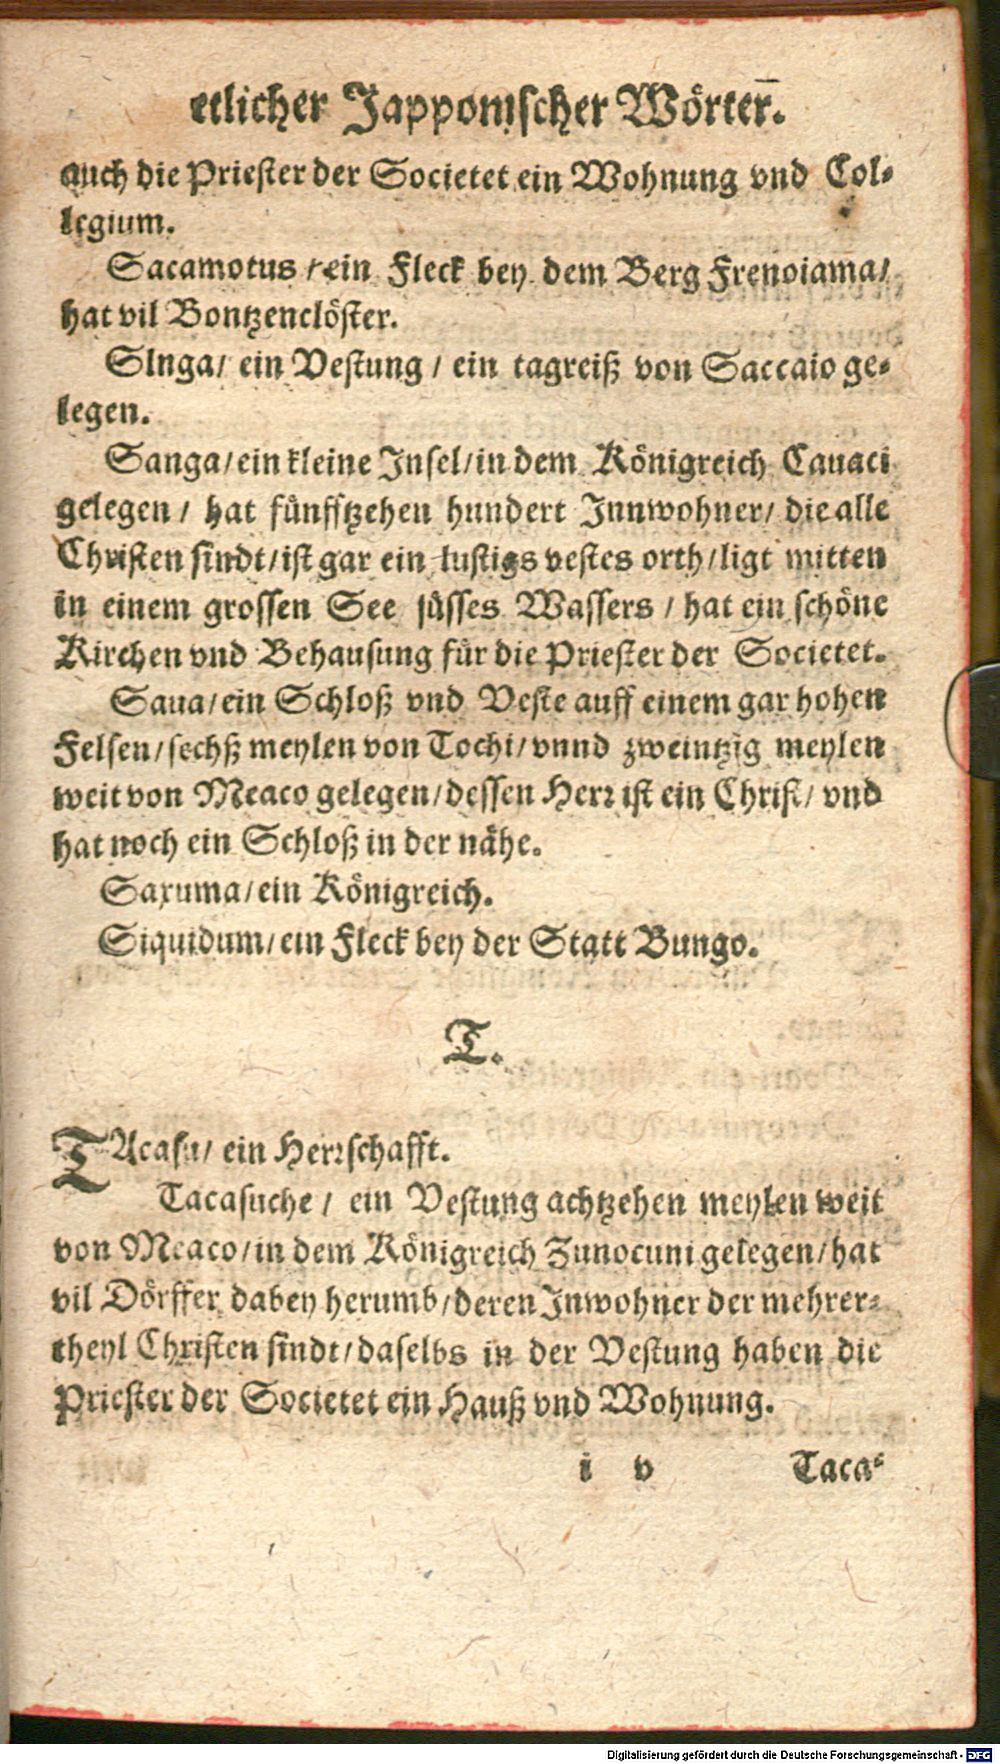 etlicher Japponischer Wörter.
auch die Priester der Societet ein Wohnung vnd Col-
legium.
Sacamotus / ein Fleck bey dem Berg Frenoiama/
hat vil Bontzenclöster.
SInga/ ein Vestung / ein tagreiß von Saccaio ge-
legen.
Sanga/ein kleine Insel/in dem Königreich Cauaci
gelegen / hat fünfftzehen hundert Innwohner/ die alle
Christen sindt/ist gar ein lustigs vestes orth/ligt mitten
in einem grossen See süsses Wassers / hat ein schöne
Kirchen vnd Behausung für die Priester der Societet.
Saua/ein Schloß vnd Veste auff einem gar hohen
Felsen/sechß meylen von Tochi/vnnd zweintzig meylen
weit von Meaco gelegen/dessen Herr ist ein Christ/ vnd
hat noch ein Schloß in der nähe.
Saxuma/ein Königreich.
Siquidum/ein Fleck bey der Statt Bungo.
T.
TAcasu/ ein Herrschafft.
Tacasuche / ein Vestung achtzehen meylen weit
von Meaco/in dem Königreich Zunocuni gelegen/hat
vil Dörffer dabey herumb/deren Inwohner der mehrer-
theyl Christen sindt/daselbs in der Vestung haben die
Priester der Societet ein Hauß vnd Wohnung.
i v Taca-
Digitalisierung gefördert durch die Deutsche Forschungsgemeinschaft - DFG